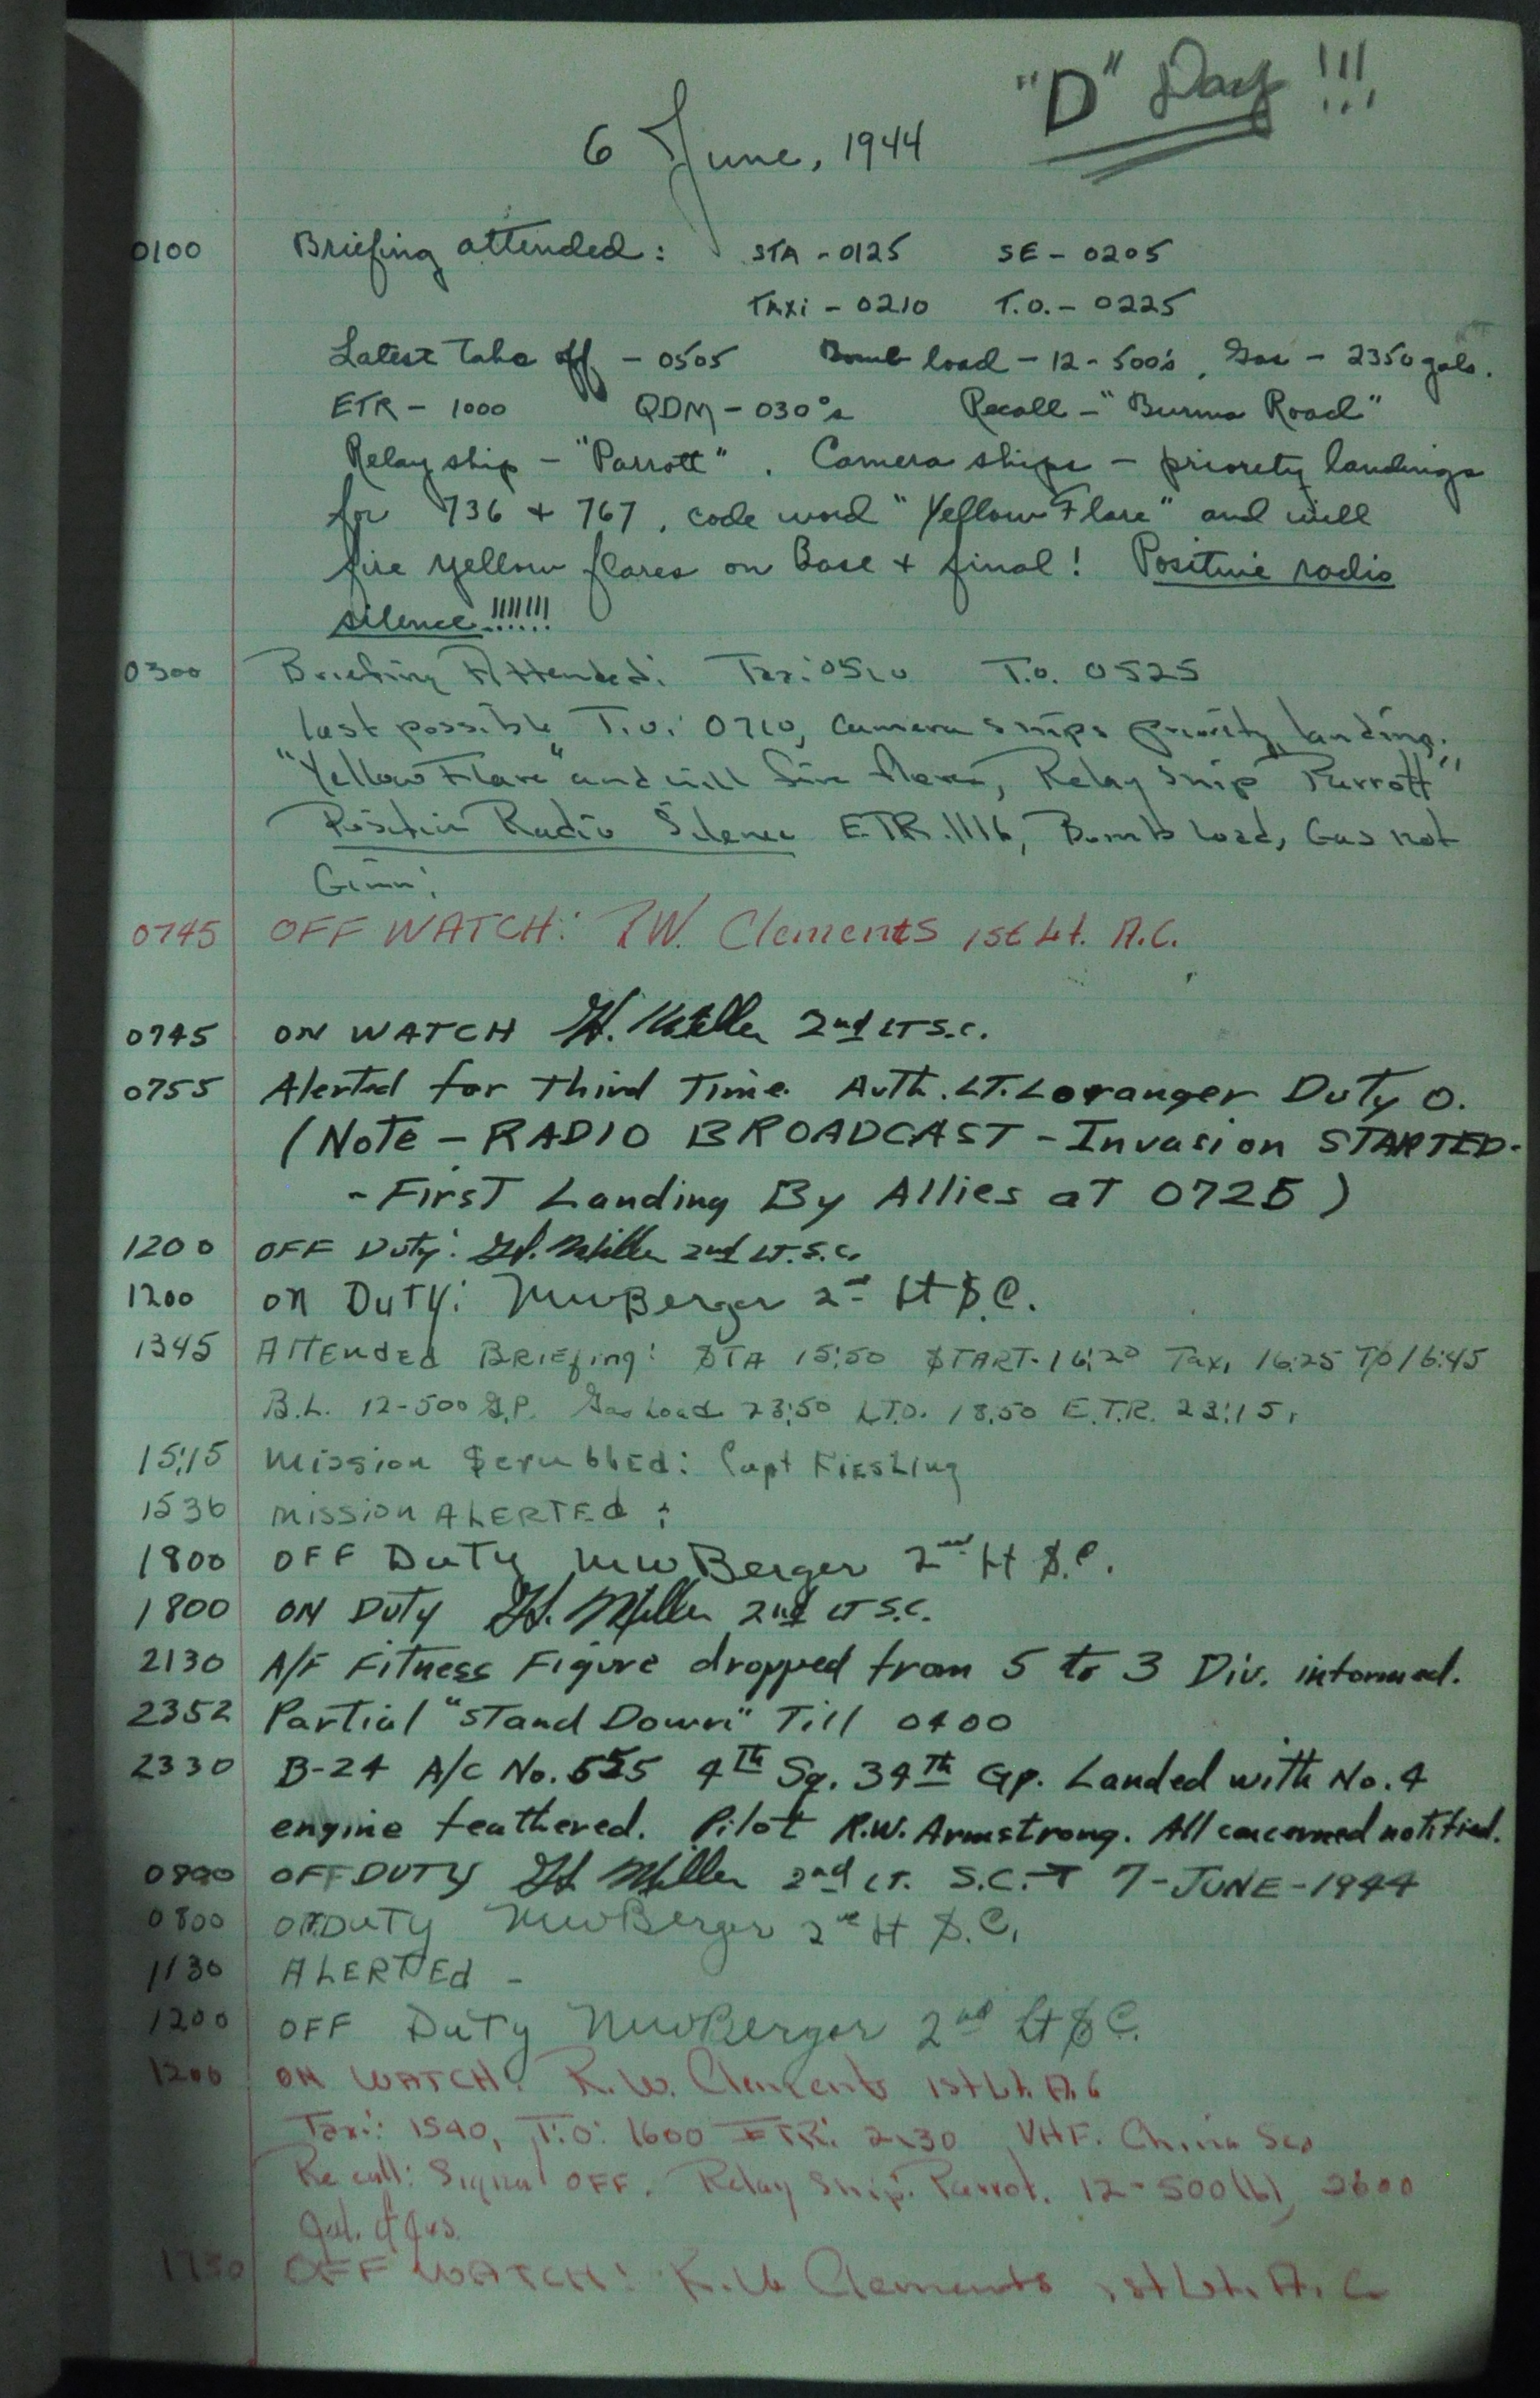 "D" Day !!!
6 June, 1944
0100 Briefing attended: STA - 0125 SE - 0205
TAXi - 0210 T.O. - 0225
Latest Take off - 0505 Bomb load - 12 - 500's, Gas - 2350 gals.
ETR - 1000 QDM - 030°s Recall - "Burma Road"
Relay ship - "Parrott". Camera ships - priority landings
for 736 + 767, code word "Yellow Flare" and will
fire yellow flares on Base + final! Positive radio
silence!!!!!!!
0300 Briefing Attended: Taxi 0510 T.O. 0525
last possible T.O. 0710, Camera ships priority landing.
"Yellow Flare" and will fire flares, Relay Ship "Parrott"
Positive Radio Silence ETR. 1116, Bomb load, Gas not
Given.
0745 OFF WATCH: R.W. Clements 1st Lt. A.C.
0745 ON WATCH H. Miller 2nd LT S.C.
0755 Alerted for Third Time. Auth. LT. Loranger Duty O.
(Note - RADIO BROADCAST - Invasion STARTED -
- First Landing By Allies at 0725)
1200 OFF Duty: H. Miller 2nd LT. S.C.
1200 on Duty: MWBerger 2nd Lt S.C.
1345 Attended Briefing: STA 15:50 START - 16:20 Taxi 16:25 T/O 16:45
B.L. 12-500 G.P. Gas Load 23:50 L.T.O. 18:50 E.T.R. 22:15.
15:15 Mission Scrubbed: Capt Kiesling
1536 Mission ALERTEd:
1800 OFF Duty MWBerger 2nd Lt S.C.
1800 ON Duty H. Miller 2nd LT S.C.
2130 A/F Fitness Figure dropped from 5 to 3 Div. informed.
2352 Partial "Stand Down" Till 0400
2330 B-24 A/C No. 555 4Th Sq. 34Th Gp. Landed with No. 4
engine feathered. Pilot R.W. Armstrong. All concerned notified.
0800 OFF DUTY H. Miller 2nd LT. S.C. 7-JUNE-1944
0800 ON DUTY MWBerger 2nd Lt S.C.
1130 ALERTEd -
1200 OFF Duty MWBerger 2nd Lt S.C.
1200 ON WATCH: R.W. Clements 1st Lt. A.C
Taxi: 1540, T.O: 1600 ETR: 2130 VHF. China Sea
Recall: Signal OFF. Relay Ship: Parrot. 12-500lb, 2600
gal. of gas.
1730 OFF WATCH: R.W Clements 1st Lt. A.C